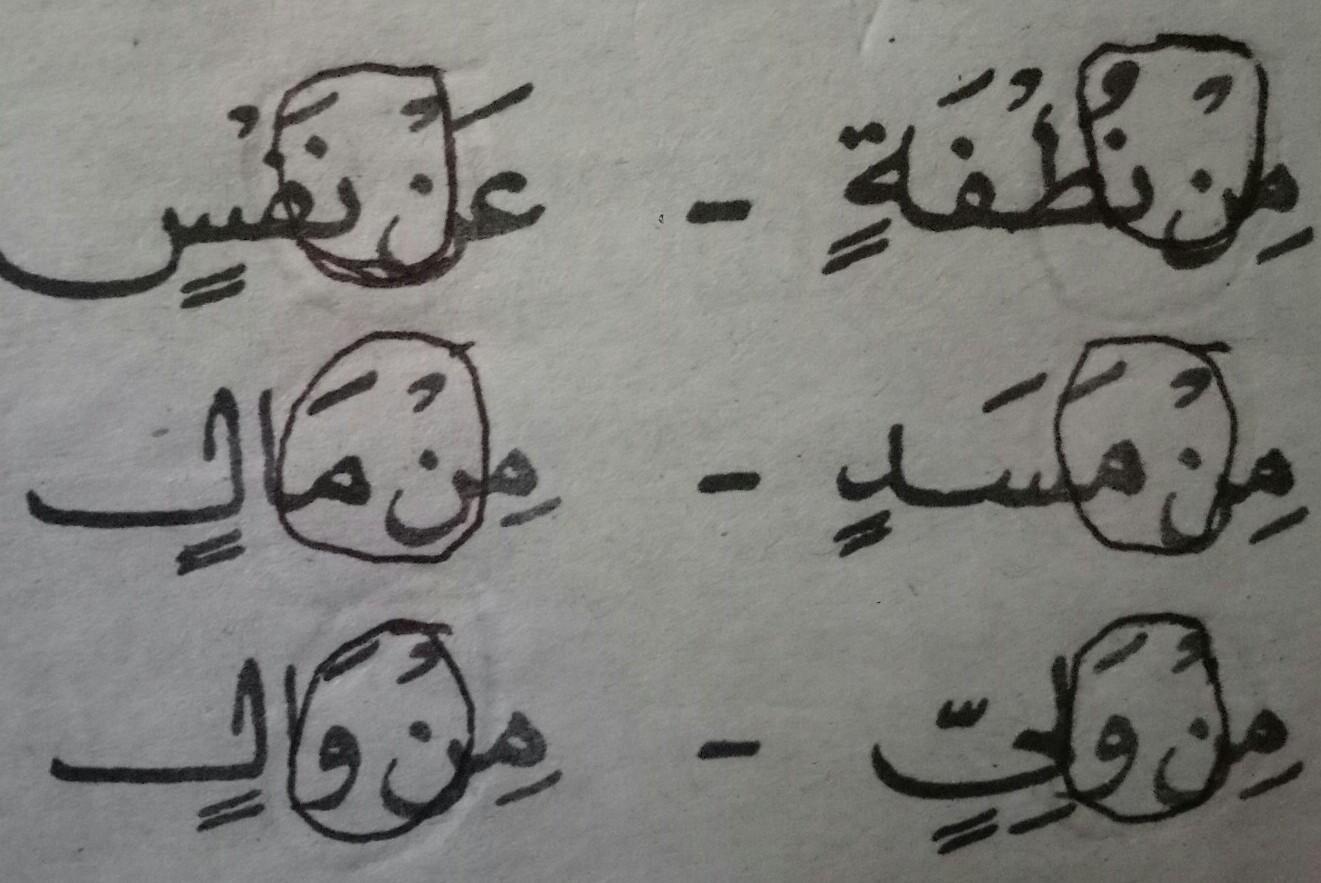 مِنْ نُطْفَةٍ - عَنْ نَفْسٍ
مِنْ مَسَدٍ - مِنْ مَالٍ
مِنْ وَلِيٍّ - مِنْ وَالٍ